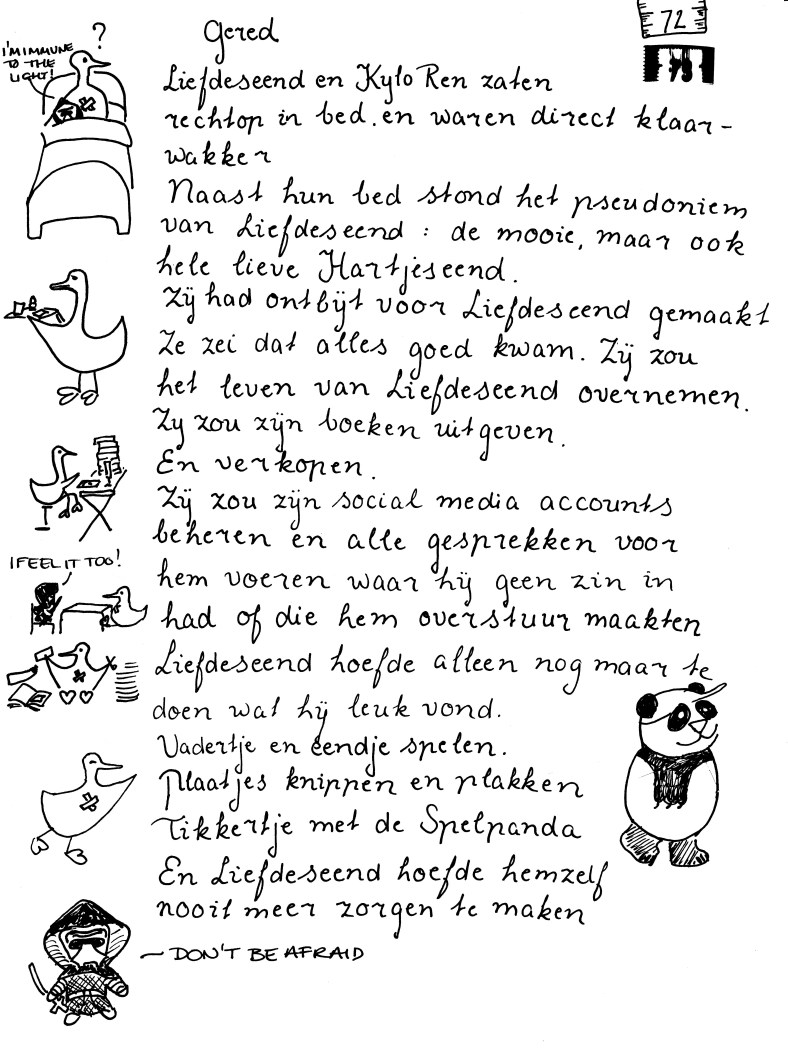 Gered
72
73
?
I'M IMMUNE
TO THE
LIGHT!
Liefdeseend en Kylo Ren zaten
rechtop in bed. en waren direct klaar-
wakker
Naast hun bed stond het pseudoniem
van Liefdeseend : de mooie, maar ook
hele lieve Hartjeseend.
Zij had ontbijt voor Liefdeseend gemaakt
Ze zei dat alles goed kwam. Zij zou
het leven van Liefdeseend overnemen.
Zy zou zijn boeken uitgeven.
En verkopen.
Zij zou zijn social media accounts
beheren en alle gesprekken voor
I FEEL IT TOO!
hem voeren waar hij geen zin in
had of die hem overstuur maakten
Liefdeseend hoefde alleen nog maar te
doen wat hij leuk vond.
Vadertje en eendje spelen.
Plaatjes knippen en plakken
Tikkertje met de Spelpanda
En Liefdeseend hoefde hemzelf
nooit meer zorgen te maken
DON'T BE AFRAID